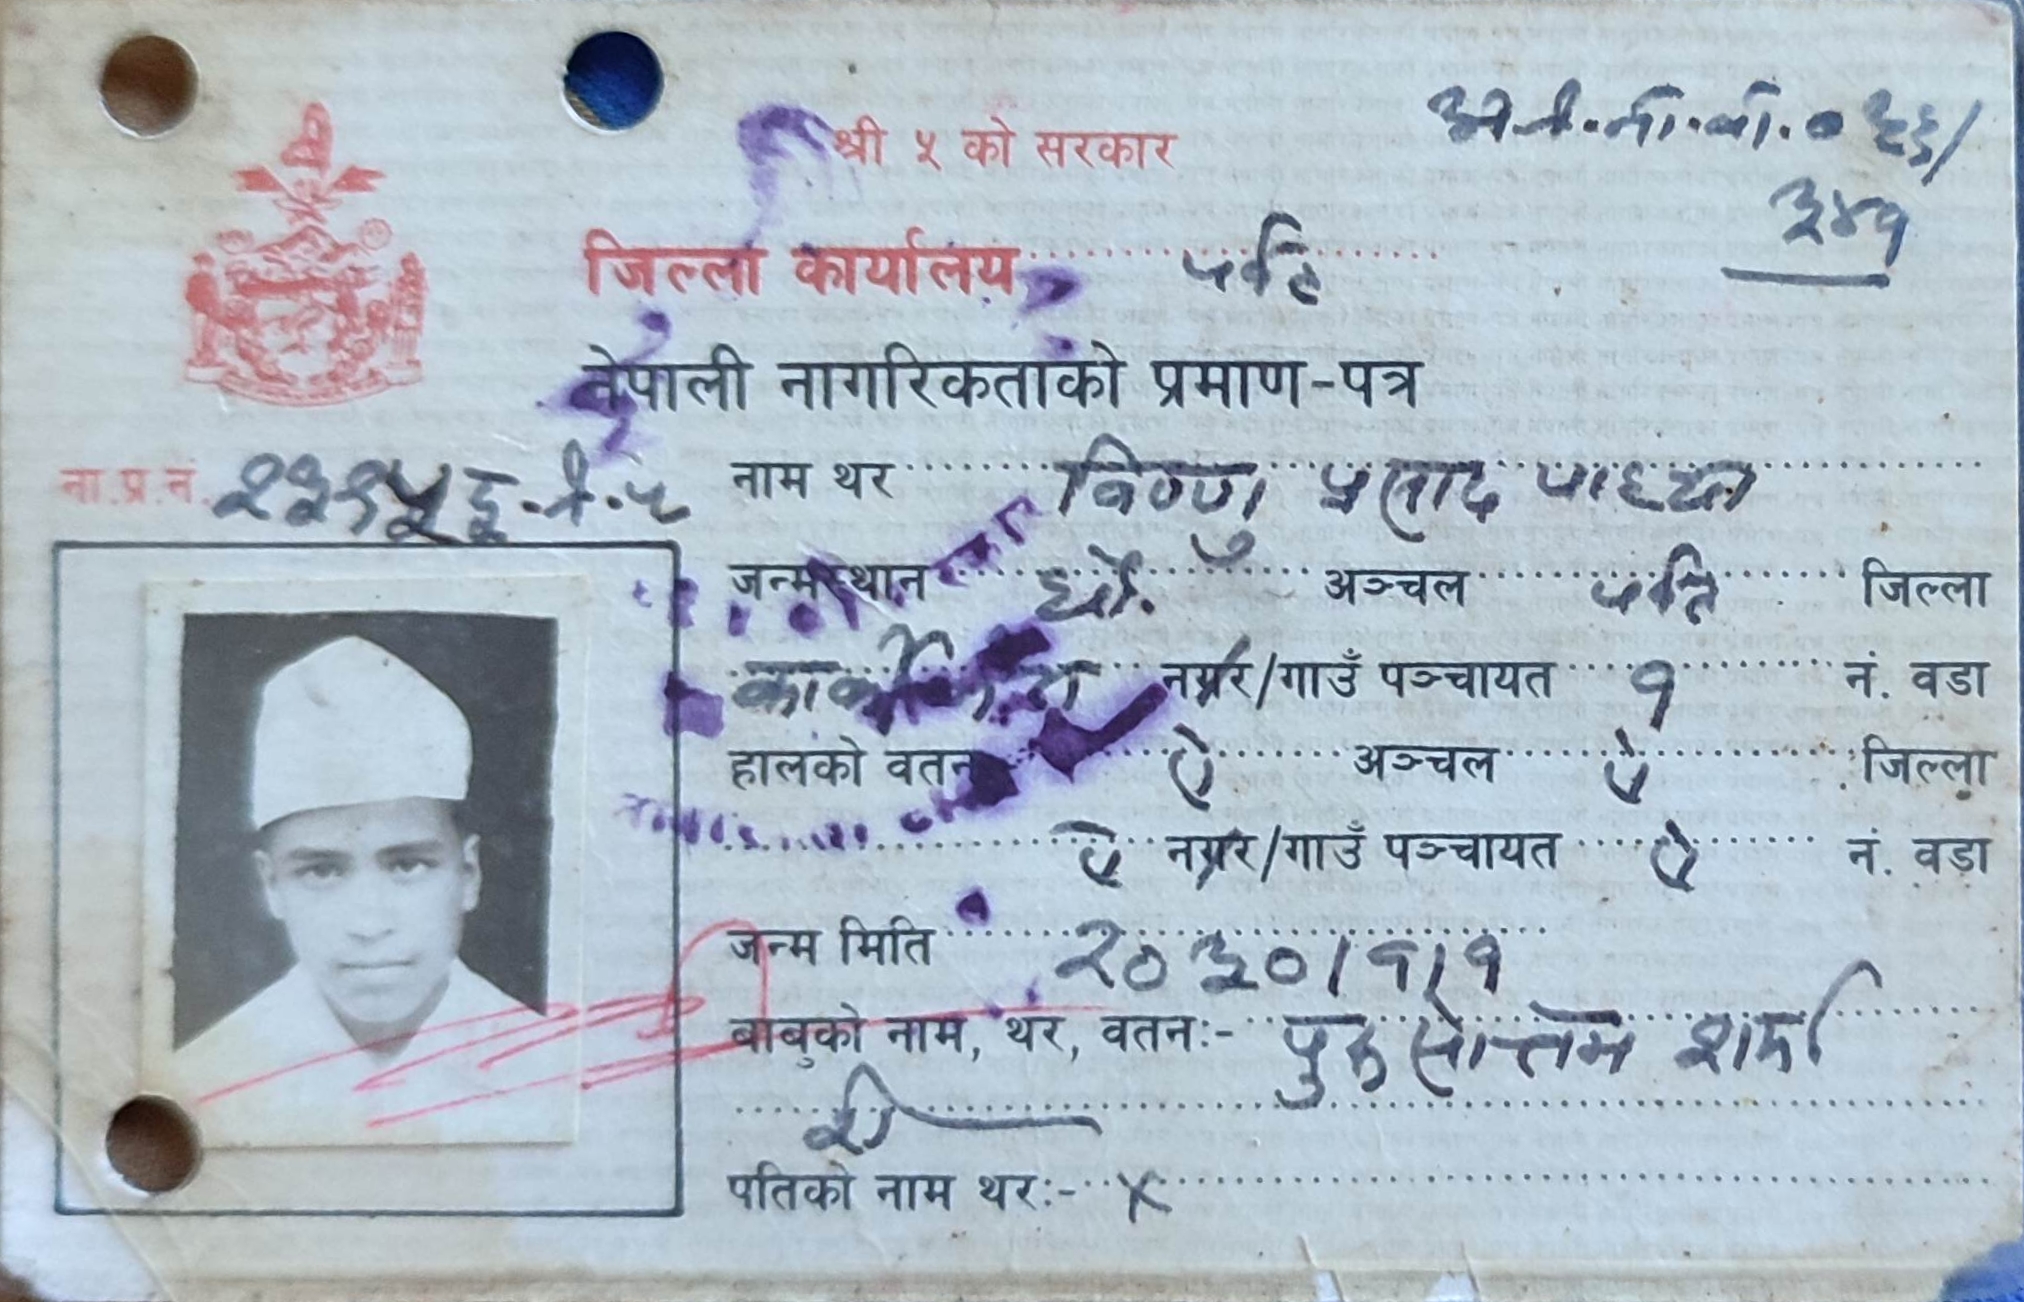 श्री ५ को सरकार
३४१
जिल्ला कार्यालय पर्वत
नेपाली नागरिकताको प्रमाण-पत्र
ना.प्र.नं.
नाम थर विष्णु प्रसाद पाध्या
जन्मस्थान धौ. अञ्चल पर्वत जिल्ला
नगर/गाउँ पञ्चायत १ नं. वडा
हालको वतन ऐ अञ्चल ऐ जिल्ला
ऐ नगर/गाउँ पञ्चायत ऐ नं. वडा
जन्म मिति २०३०/१/१
बाबुको नाम, थर, वतन:- पुरुसोत्तम शर्मा
ऐ
पतिको नाम थर:- X